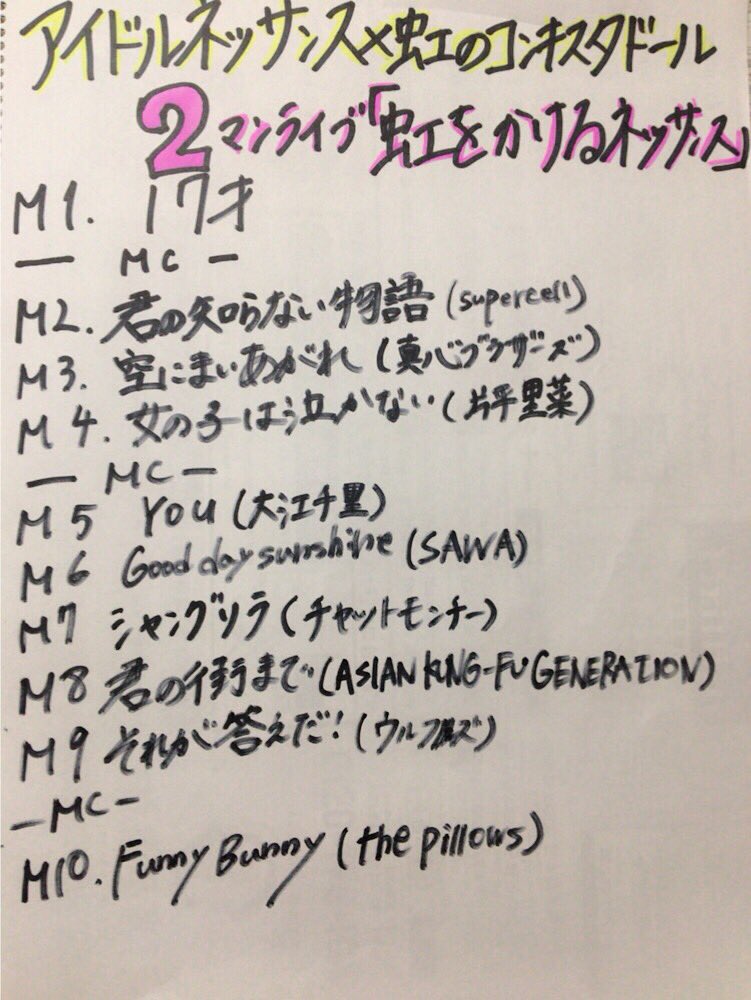 アイドルネッサンス×虹のコンキスタドール
2マンライブ「虹をかけるネッサンス」
M1. 17才
— MC —
M2. 君の知らない物語 (supercell)
M3. 空にまいあがれ (真心ブラザーズ)
M4. 女の子は泣かない (片平里菜)
— MC —
M5 YOU (大江千里)
M6 Good day sunshine (SAWA)
M7 シャングリラ (チャットモンチー)
M8 君の街まで (ASIAN KUNG-FU GENERATION)
M9 それが答えだ! (ウルフルズ)
— MC —
M10. Funny Bunny (the pillows)